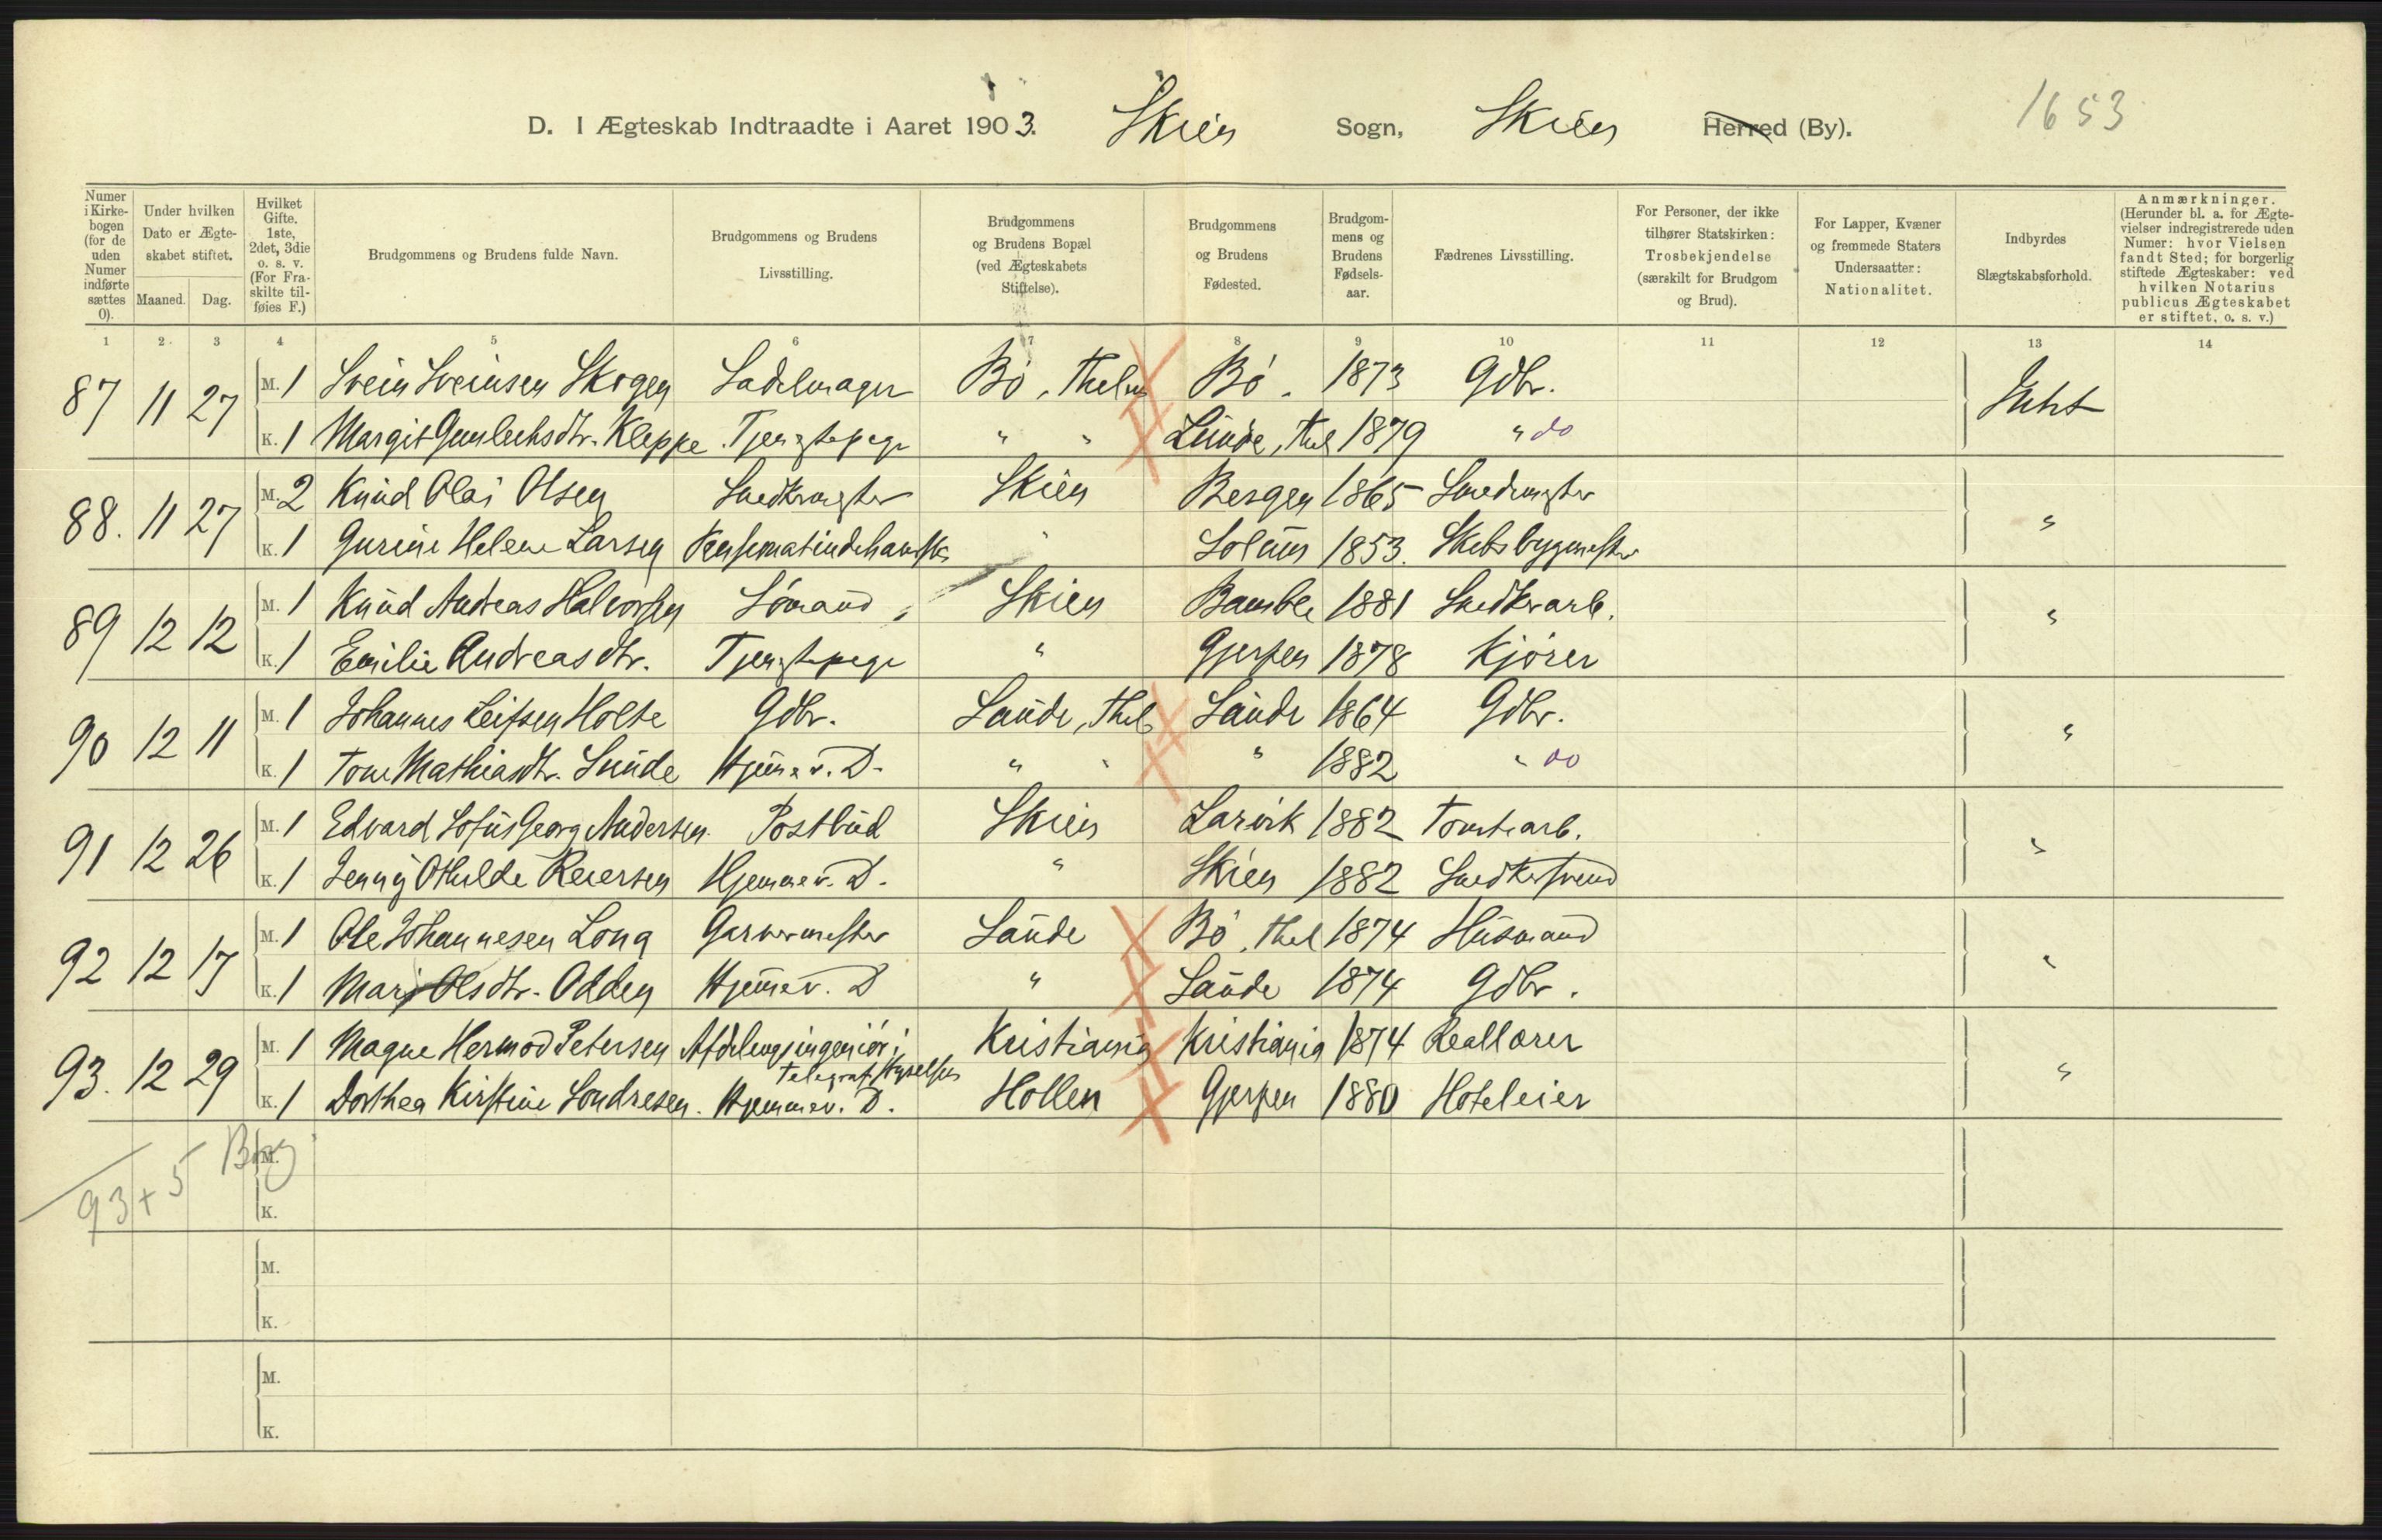 D. I Ægteskab Indtraadte i Aaret 1903. Skien Sogn, Skien Herred (By). 1653
Numer i Kirkebogen (for de uden Numer indførte sættes 0).
Under hvilken Dato er Ægteskabet stiftet.
Maaned. Dag.
Hvilket Gifte. 1ste, 2det, 3die o. s. v. (For Fraskilte tilføies F.)
Brudgommens og Brudens fulde Navn.
Brudgommens og Brudens Livsstilling.
Brudgommens og Brudens Bopæl (ved Ægteskabets Stiftelse).
Brudgommens og Brudens Fødested.
Brudgommens og Brudens Fødselsaar.
Fædrenes Livsstilling.
For Personer, der ikke tilhører Statskirken: Trosbekjendelse (særskilt for Brudgom og Brud).
For Lapper, Kvæner og fremmede Staters Undersaatter: Nationalitet.
Indbyrdes Slægtskabsforhold.
Anmærkninger. (Herunder bl. a. for Ægtevielser indregistrerede uden Numer: hvor Vielsen fandt Sted; for borgerlig stiftede Ægteskaber: ved hvilken Notarius publicus Ægteskabet er stiftet, o. s. v.)
1 2 3 4 5 6 7 8 9 10 11 12 13 14
87 11 27 M. 1 Svein Sveinsen Skogen Sadelmager Bö, Thelm Bö. 1873 Gdbr. Intet
K. 1 Margit Gunleiksdtr. Kleppe Tjenstepige " " Lunde, Thel 1879 " do
88. 11 27 M. 2 Knud Olai Olsen Snedkermester Skien Bergen 1865 Smedmester "
K. 1 Gurine Helene Larsen " Solum 1853. Skibsbygmester
89 12 12 M. 1 Knud Andreas Halvorsen Sömand Skien Bamble 1881 Snedkerarb. "
K. 1 Emilie Andreasdtr. Tjenstepige " Gjerpen 1878 Kjörer
90 12 11 M. 1 Johannes Leifsen Holte Gdbr. Saude, Thel Saude 1864 Gdbr. "
K. 1 Tone Mathiasdtr. Lunde Hjemmev. D. " " " 1882 " do
91 12 26 M. 1 Edvard Sofus Georg Andersen Postbud Skien Larvik 1882 Tomtearb. "
K. 1 Jenny Othilde Reiersen Hjemmev. D. " Skien 1882 Snedkersvend
92 12 17 M. 1 Ole Johannesen Long Garvermester Saude Bö, Thel 1874 Husmand "
K. 1 Mari Olsdtr. Odden Hjemmev. D " Saude 1874 Gdbr.
93. 12 29 M. 1 Magne Hermod Petersen Afdelingsingeniör i Telegrafstyrelsen Kristiania Kristiania 1874 Reallærer "
K. 1 Dorthea Kirstine Sondresen. Hjemmev. D. Hollen Gjerpen 1880 Hoteleier
93 + 5 Borg M.
K.
M.
K.
M.
K.